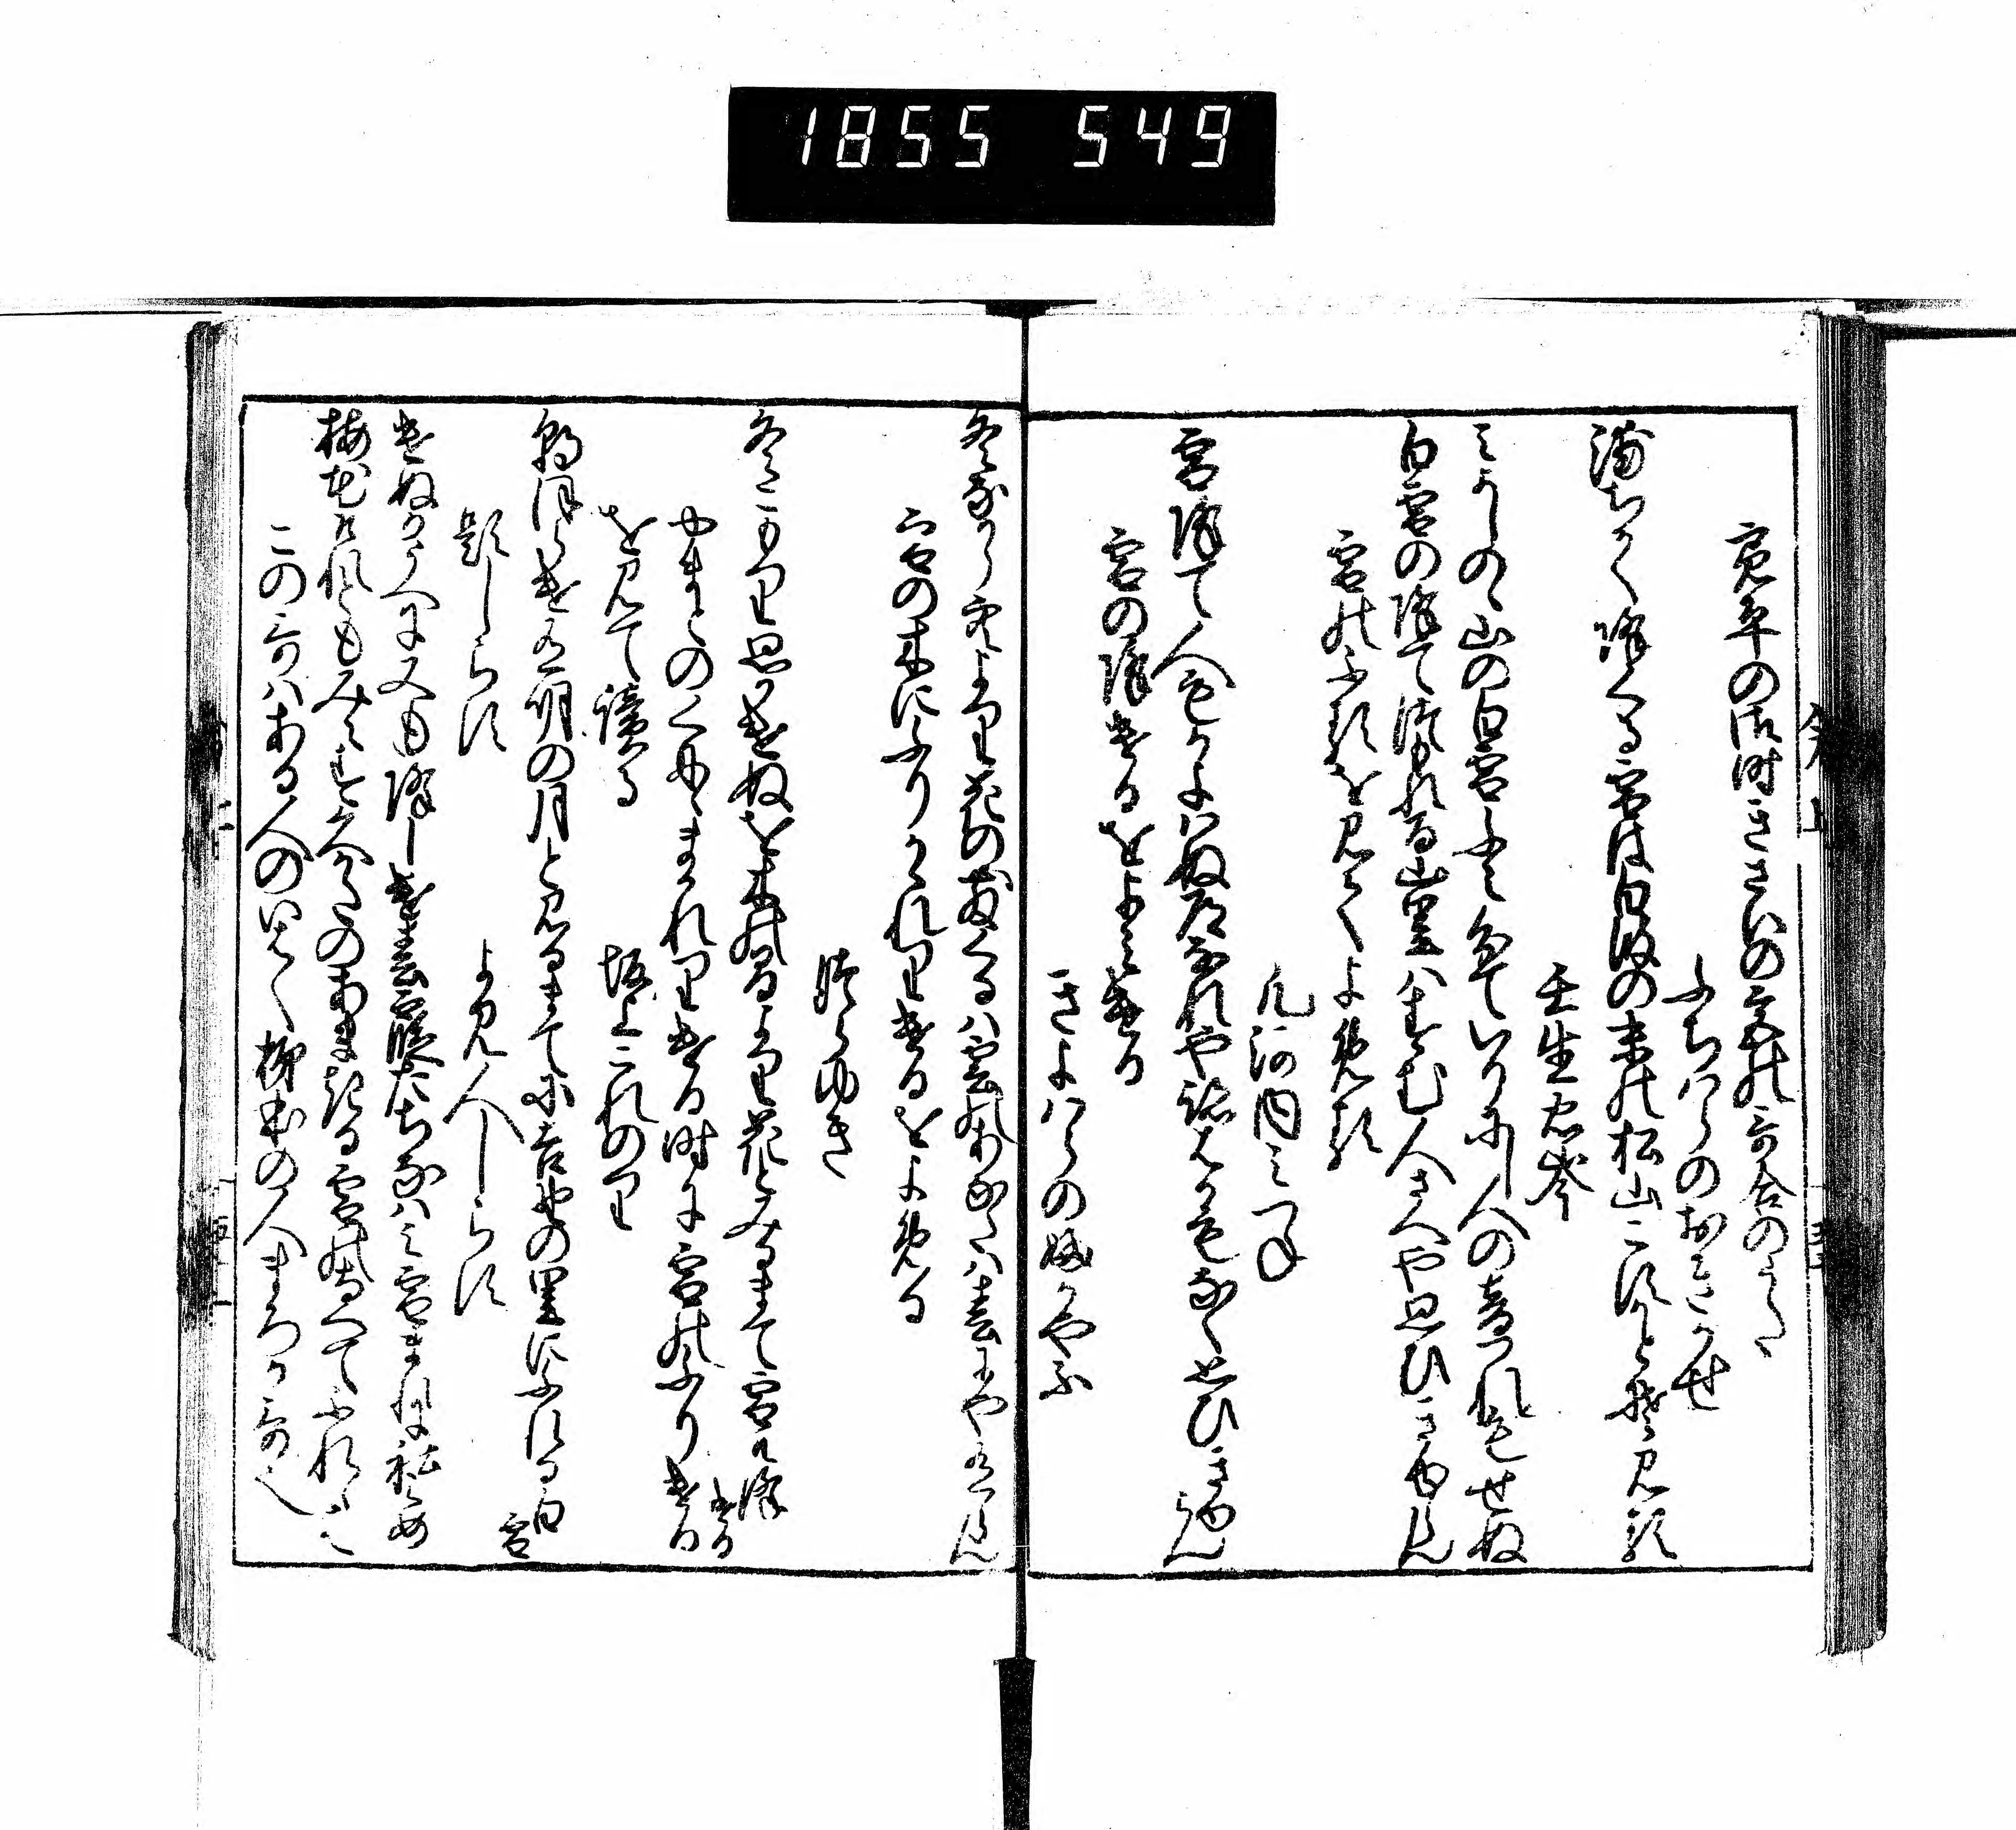 1855 549
寛平の御時きさいの宮の哥合のうた
ふちはらのおきかせ
浦ちかく降くる雪は白波の末の松山こすかとそ見る
壬生忠岑
みよしのゝ山の白雪ふみ分ていりにし人の音つれもせぬ
白雪の降てつもれる山里はすむ人さへや思ひきゆらん
雪のふるを見てよめる
凡河内みつね
雪降て人もかよはぬ道なれや跡はかもなく思ひきゆらん
雪の降けるをよみける
きよはらの深やふ
冬なから空より花の散くるは雲のあなたは春にやあるらん
雪の木にふりかゝれりけるをよめる
つらゆき
冬こもり思ひかけぬを木のまより花とみるまて雪そ降
ける
やまとのくにゝまかれりける時に雪のふりける
を見て讀る
坂上これのり
朝ほらけ有明の月と見るまてに吉野の里にふれる白
雪
題しらす
よみ人しらす
けぬかうへに又も降しけ春霞たちなはみ雪まれにこそみめ
梅花それともみえす久かたのあまきる雪のなへてふれゝは
この哥はある人のいはく柿本の人まろか哥也